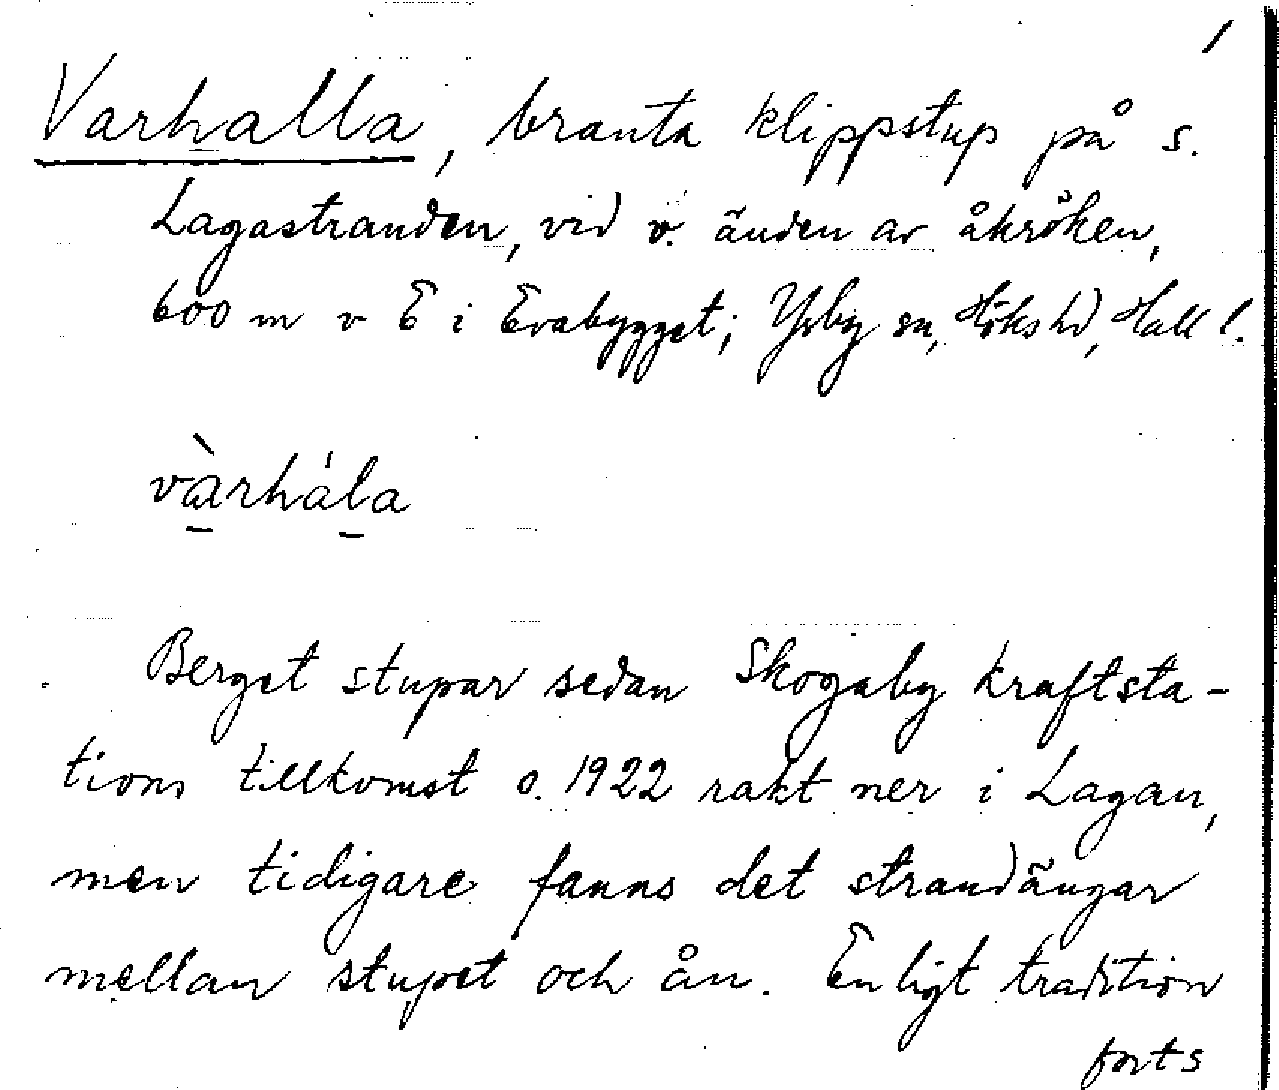 1
Varhalla, branta klippstup på s.
Lagastranden, vid v. änden av åkröken,
600 m v E i Evabygget; Ysby sn, Höks hd, Hall l.
vàrhála
Berget stupar sedan Skogaby kraftsta-
tions tillkomst o. 1922 rakt ner i Lagan,
men tidigare fanns det strandängar
mellan stupet och ån. Enligt tradition
forts